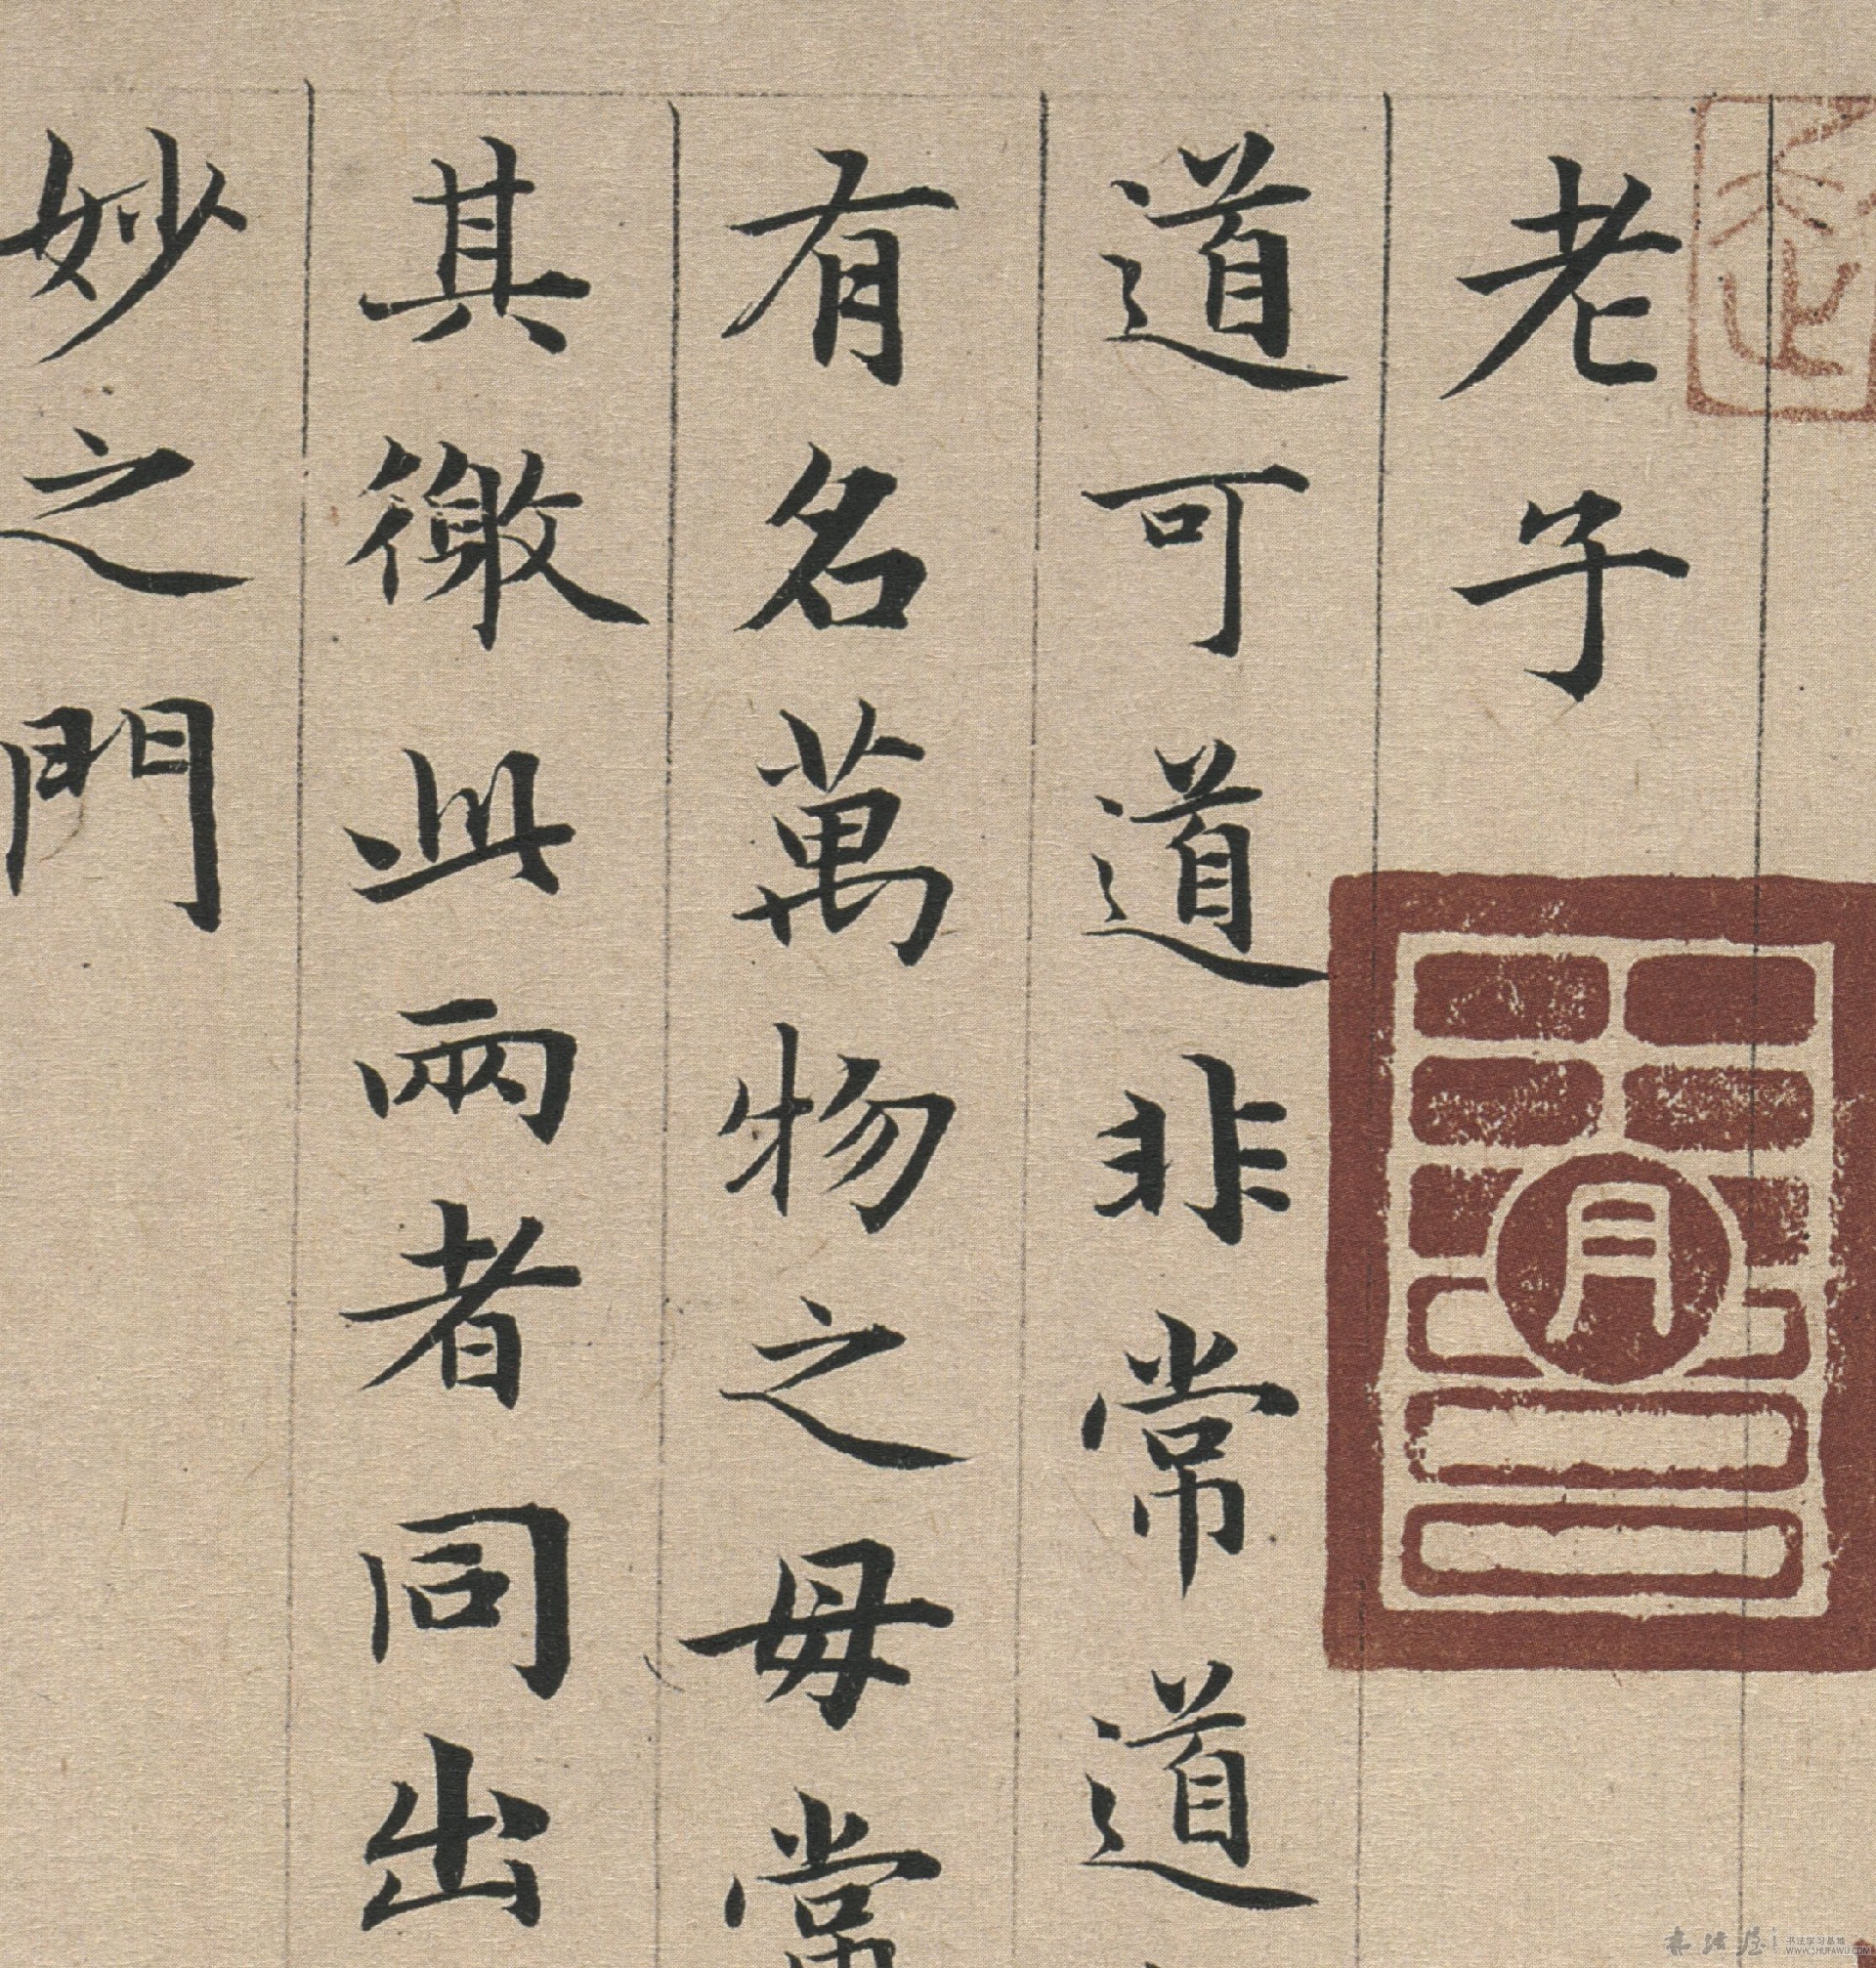 老子
道可道非常道
有名萬物之母常
其徼此兩者同出
妙之門
月
书法学习基地
WWW.SHUFAWU.COM